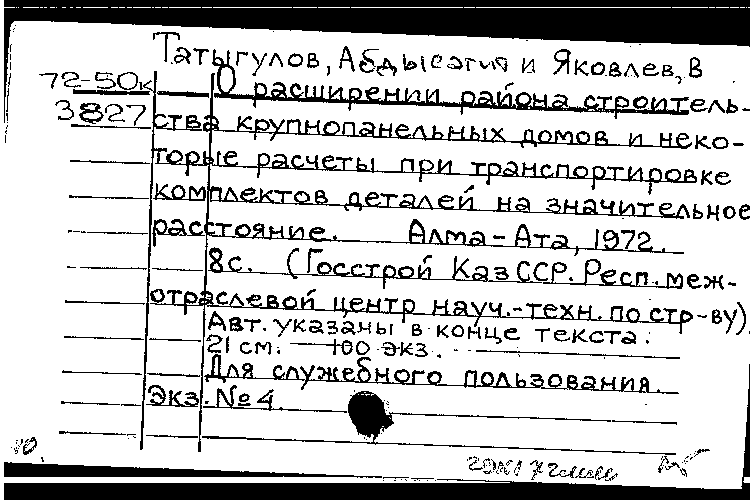 Татыгулов, Абдысагия и Яковлев, В
72-50к
О расширении района строитель-
3827
ства крупнопанельных домов и неко-
торые расчеты при транспортировке
комплектов деталей на значительное
расстояние. Алма-Ата, 1972.
8с. (Госстрой КазССР. Респ. меж-
отраслевой центр науч.-техн. по стр-ву).
Авт. указаны в конце текста.
21 см. 100 экз.
Для служебного пользования.
Экз. № 4.